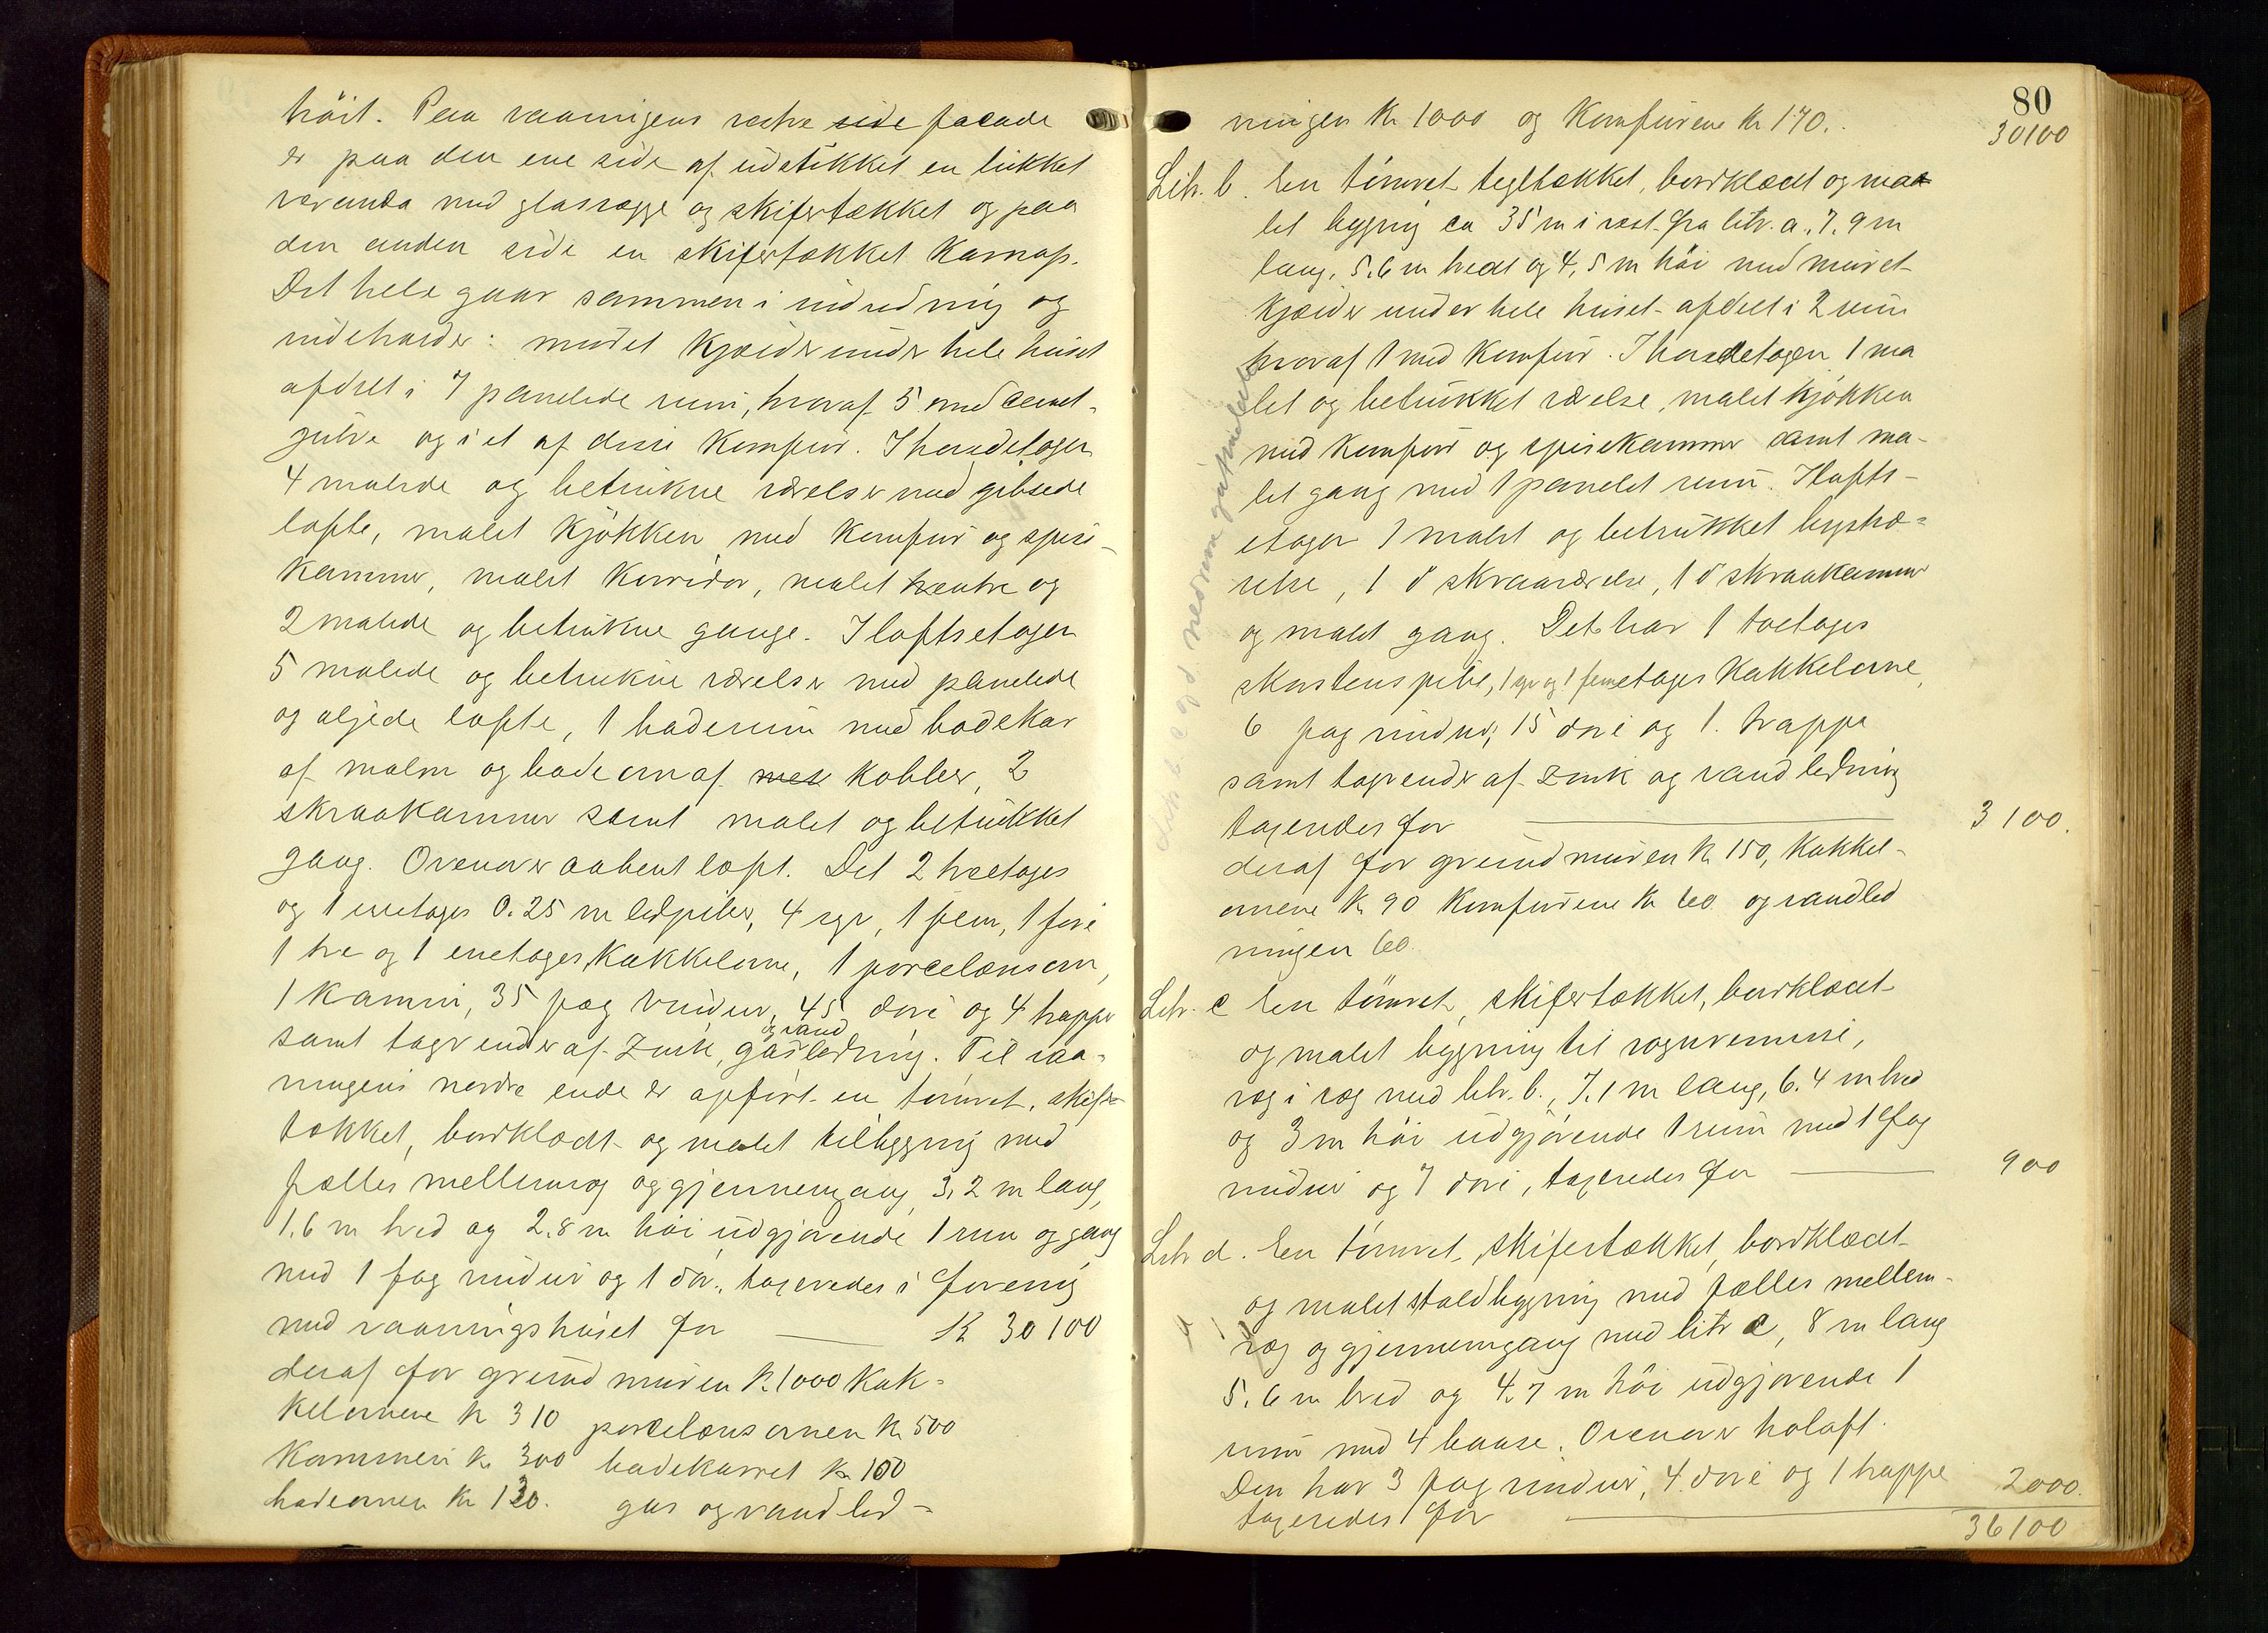 höit. Paa vaaningens vestre side facade
er paa den ene side af udstikket en lukket
veranda med glasvægge og skifertækket og paa
den anden side en skifertækket karnap.
Det hele gaar sammen i indredning og
indeholder: muret kjælder under hele huset
afdelt i 7 panelede rum, hvoraf 5 med cement-
gulve og i et af disse komfur. I hovedetagen
4 malede og betrukne værelser med gibsede
lofte, malet kjökken med komfur og spise-
kammer, malet korridor, malet entre og
2 malede og betrukne gange. I loftsetagen
5 malede og betrukne værelser med panelede
og oljede lofte, 1 baderum med badekar
af malm og badeovn af kobber, 2
skraakammer samt malet og betrukket
gang. Ovenover aabent loft. Det 2 toetages
og 1 enetages 0.25 m ledpiber, 4 syv, 1 fem, 1 fire
1 tre og 1 enetages kakkelovne, 1 porcelænsovn,
1 kamin, 35 fag vinduer, 45 döre og 4 trapper
samt tagrender af zink, gas og vandledning. Til vaa-
ningens nordre ende er opfört en tömret, skifer-
tækket, bordklædt og malet tilbygning med
fælles mellemvæg og gjennemgang, 3,2 m lang,
1.6 m bred og 2.8 m höi udgjörende 1 rum og gang
med 1 fag vinduer og 1 dör, taxeredes i forening
med vaaningshuset for Kr 30100
deraf for grundmuren Kr. 1000 kak-
kelovnene Kr 310 porcelænsovnen Kr 500
Kaminen Kr. 300 badekarret Kr 100
badeovnen Kr 120. gas og vandled-
80
ningen Kr 1000 og Komfurene Kr 170.
30100
Litr. b. En tömret tegltækket, bordklædt og ma-
let bygning ca 35 m i vest fra litr. a. 7,9 m
lang, 5.6 m bredt og 4,5 m höi med muret
kjælder under hele huset afdelt i 2 rum
hvoraf 1 med komfur. I hovedetagen 1 ma
let og betrukket værelse, malet kjökken
med komfur og spisekammer samt ma-
let gang med 1 panelet rum. I lofts-
etagen 1 malet og betrukket kvistvæ-
relse, 1 d° skraaværelse, 1 d° skraakammer
og malet gang. Det har 1 toetages
skorstenspibe, 1 syv og 1 femetages kakkelovne,
6 fag vinduer, 15 döre og 1. trappe
samt tagrender af zink og vandledning
taxeredes for 3100.
deraf for grundmuren Kr 150, kakkel-
ovnene Kr 90 komfurene Kr 60 og vandled
ningen 60.
Litr. c En tömret, skifertækket, bordklædt
og malet bygning til vognremisse,
væg i væg med litr. b., 7.1 m lang, 6.4 m bred
og 3 m höi udgjörende 1 rum med 1 fag
vinduer og 7 döre, taxeredes for 900
Litr d. En tömret, skifertækket, bordklædt
og malet staldbygning med fælles mellem-
væg og gjennemgang med litr c, 8 m lang
5.6 m bred og 4,7 m höi udgjörende 1
rum med 4 baase. Ovenover höloft.
Den har 3 fag vinduer, 4 döre og 1 trappe
taxeredes for 2000.
36100